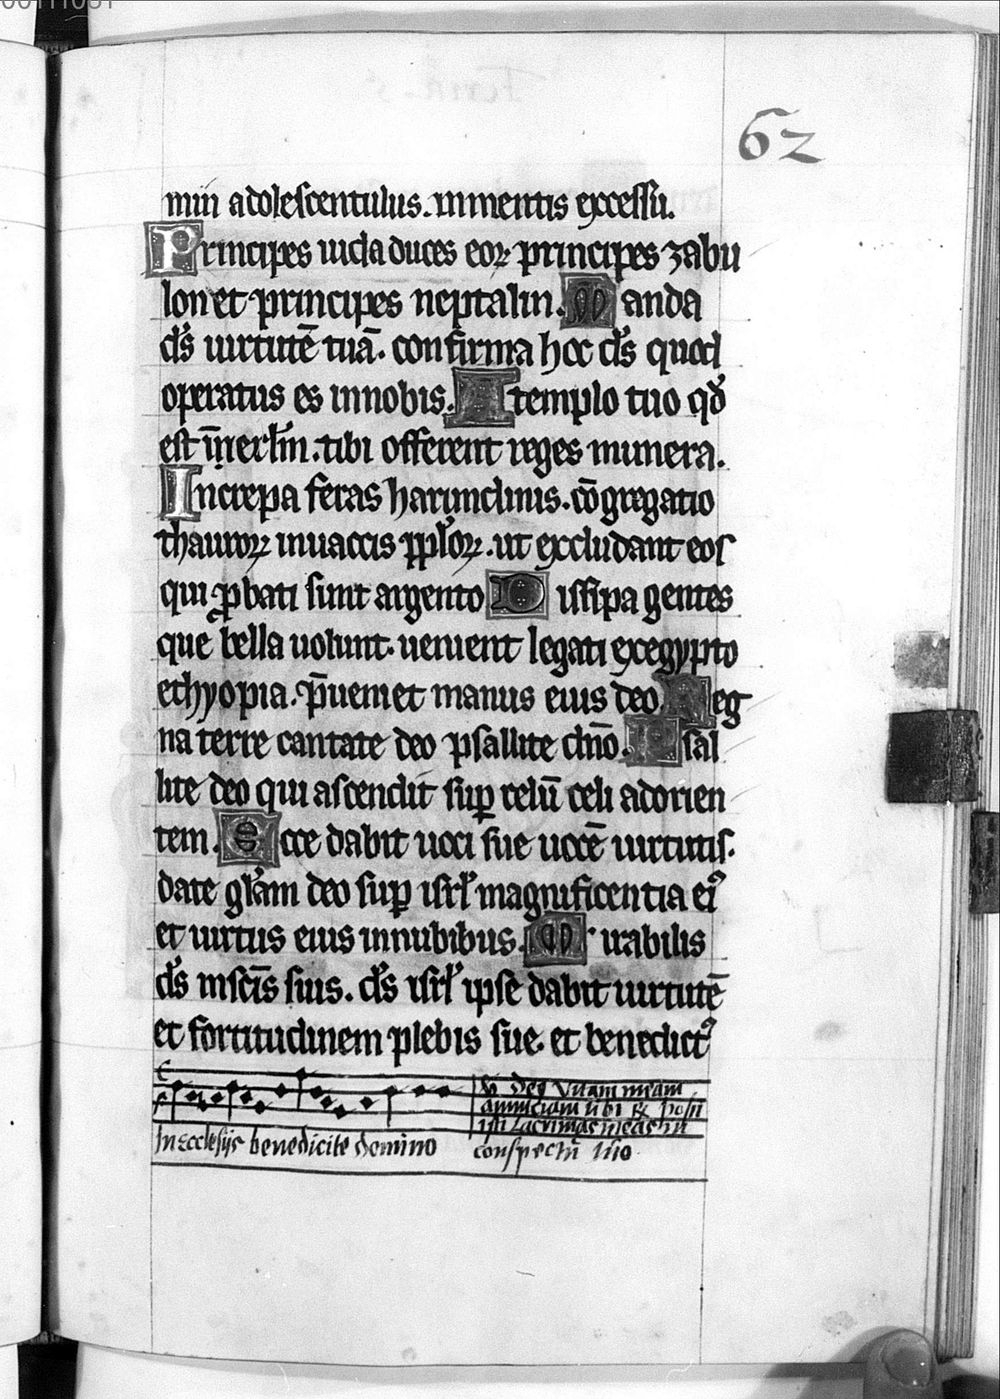 00111061
62
min adolescentulus. in mentis excessu.
Principes iuda duces eoꝝ principes zabu
lon et principes neptalin. Manda
ds̄ uirtutē tuā. confirma hoc ds̄ quod
operatus es innobis. A templo tuo qđ
est ī ierl̄m. tibi offerent reges munera.
Increpa feras harundinis. cōgregatio
thauroꝝ inuaccis pp̄loꝝ. ut excludant eos
qui ꝓbati sunt argento Dissipa gentes
que bella uolunt. uenient legati exegypto
ethyopia. p̄ueniet manus eius deo. Reg
na terre cantate deo psallite dn̄o. Psal
lite deo qui ascendit suꝑ celū celi adorien
tem. Ecce dabit uoci sue uocē uirtutis.
date gl̄am deo suꝑ isrl̄ magnificentia eiꝰ
et uirtus eius innubibus. Mirabilis
ds̄ inscīs suis. ds̄ isrl̄ ipse dabit uirtutē
et fortitudinem plebis sue. et benedictꝰ
℣ Deꝰ Vitam meam
annuciaui tibi &amp; posu
isti Lacrimas meas in
In Ecclesijs benedicite domino conspectu tuo